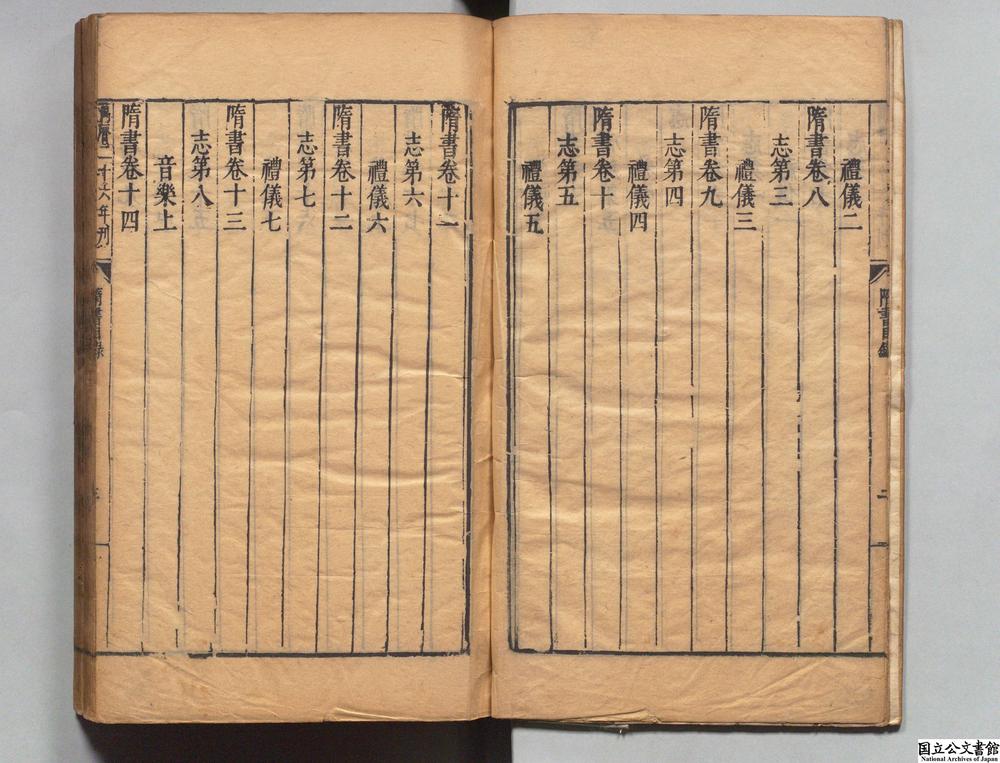 隋書目錄
二
禮儀二
隋書卷八
志第三
禮儀三
隋書卷九
志第四
禮儀四
隋書卷十
志第五
禮儀五
隋書卷十一
志第六
禮儀六
隋書卷十二
志第七
禮儀七
隋書卷十三
志第八
音樂上
隋書卷十四
萬曆二十六年刊
隋書目錄
三
国立公文書館
National Archives of Japan